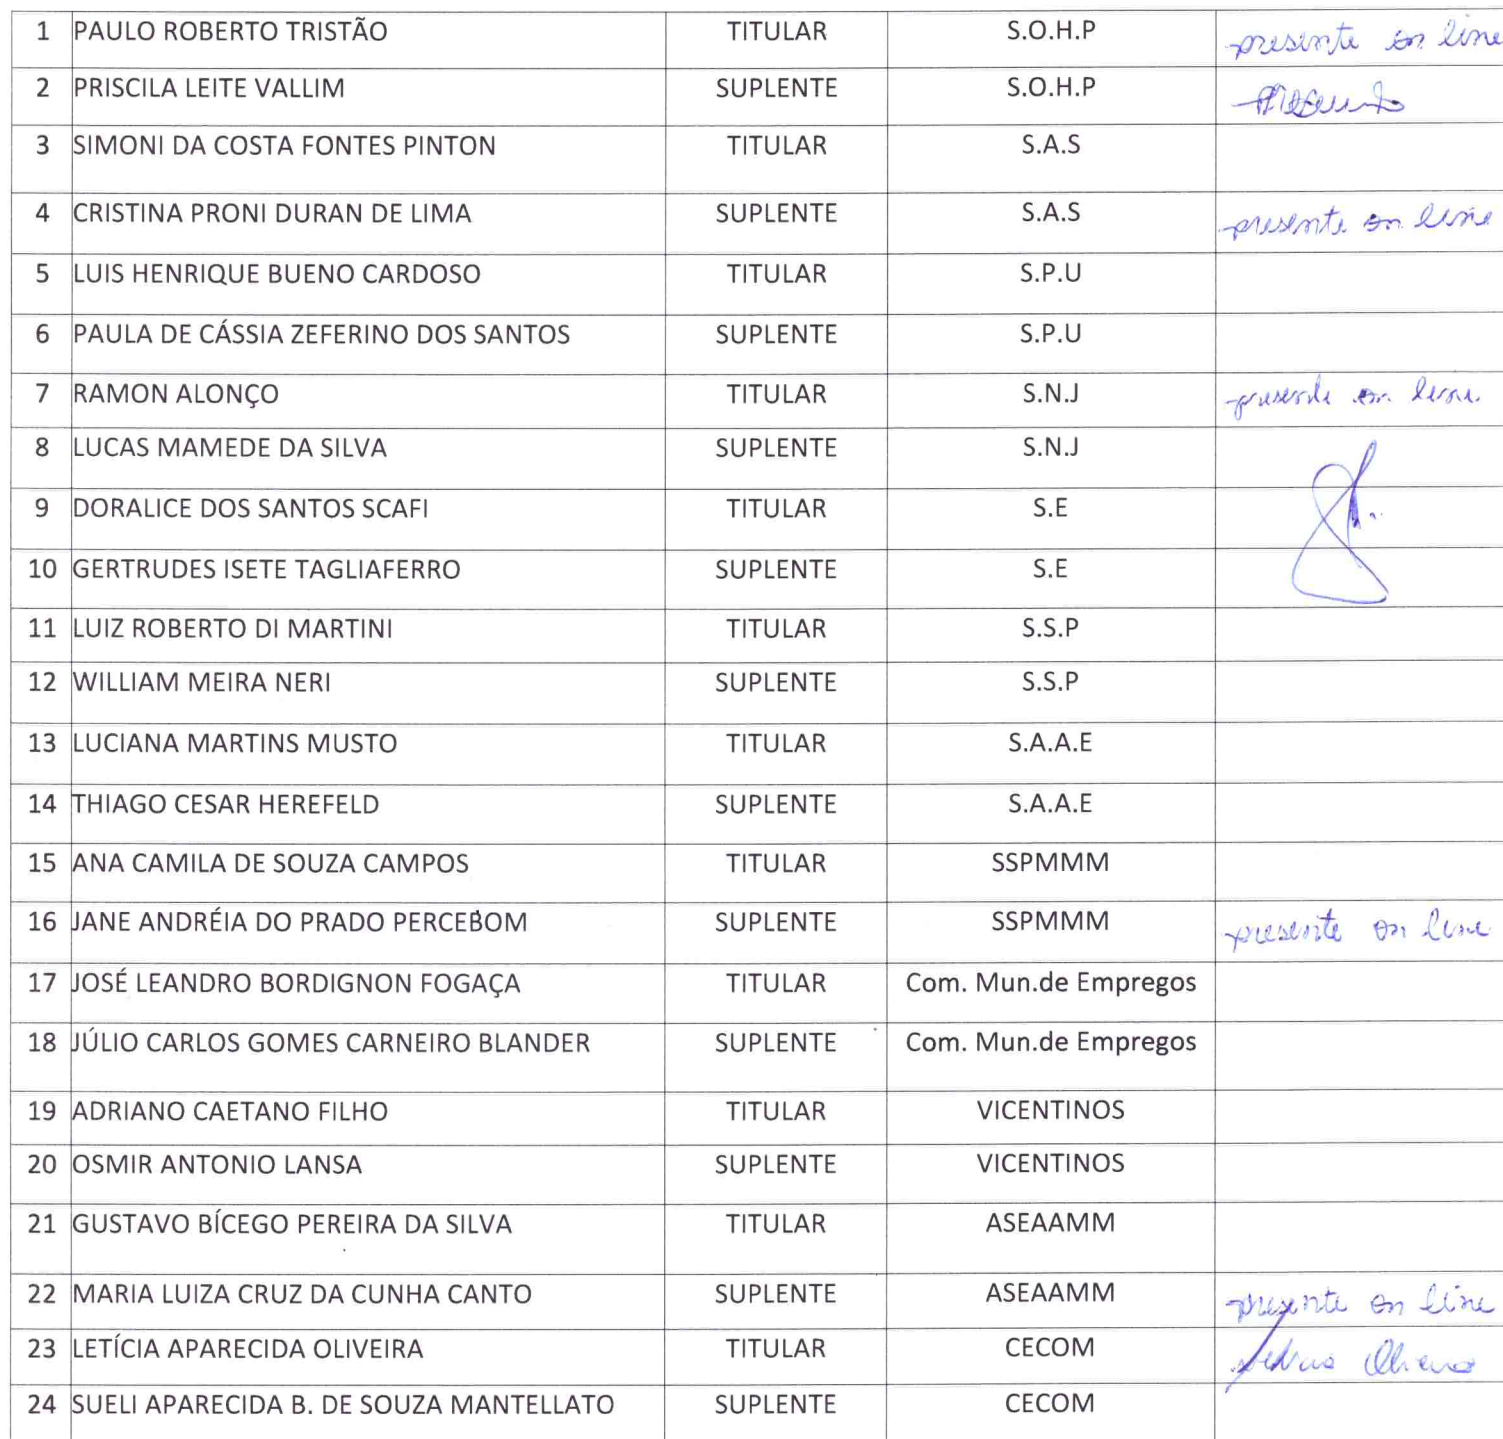 1 PAULO ROBERTO TRISTÃO TITULAR S.O.H.P presente on line
2 PRISCILA LEITE VALLIM SUPLENTE S.O.H.P
3 SIMONI DA COSTA FONTES PINTON TITULAR S.A.S
4 CRISTINA PRONI DURAN DE LIMA SUPLENTE S.A.S presente on line
5 LUIS HENRIQUE BUENO CARDOSO TITULAR S.P.U
6 PAULA DE CÁSSIA ZEFERINO DOS SANTOS SUPLENTE S.P.U
7 RAMON ALONÇO TITULAR S.N.J presente on line
8 LUCAS MAMEDE DA SILVA SUPLENTE S.N.J
9 DORALICE DOS SANTOS SCAFI TITULAR S.E
10 GERTRUDES ISETE TAGLIAFERRO SUPLENTE S.E
11 LUIZ ROBERTO DI MARTINI TITULAR S.S.P
12 WILLIAM MEIRA NERI SUPLENTE S.S.P
13 LUCIANA MARTINS MUSTO TITULAR S.A.A.E
14 THIAGO CESAR HEREFELD SUPLENTE S.A.A.E
15 ANA CAMILA DE SOUZA CAMPOS TITULAR SSPMMM
16 JANE ANDRÉIA DO PRADO PERCEBOM SUPLENTE SSPMMM presente on line
17 JOSÉ LEANDRO BORDIGNON FOGAÇA TITULAR Com. Mun.de Empregos
18 JÚLIO CARLOS GOMES CARNEIRO BLANDER SUPLENTE Com. Mun.de Empregos
19 ADRIANO CAETANO FILHO TITULAR VICENTINOS
20 OSMIR ANTONIO LANSA SUPLENTE VICENTINOS
21 GUSTAVO BÍCEGO PEREIRA DA SILVA TITULAR ASEAAMM
22 MARIA LUIZA CRUZ DA CUNHA CANTO SUPLENTE ASEAAMM presente on line
23 LETÍCIA APARECIDA OLIVEIRA TITULAR CECOM
24 SUELI APARECIDA B. DE SOUZA MANTELLATO SUPLENTE CECOM